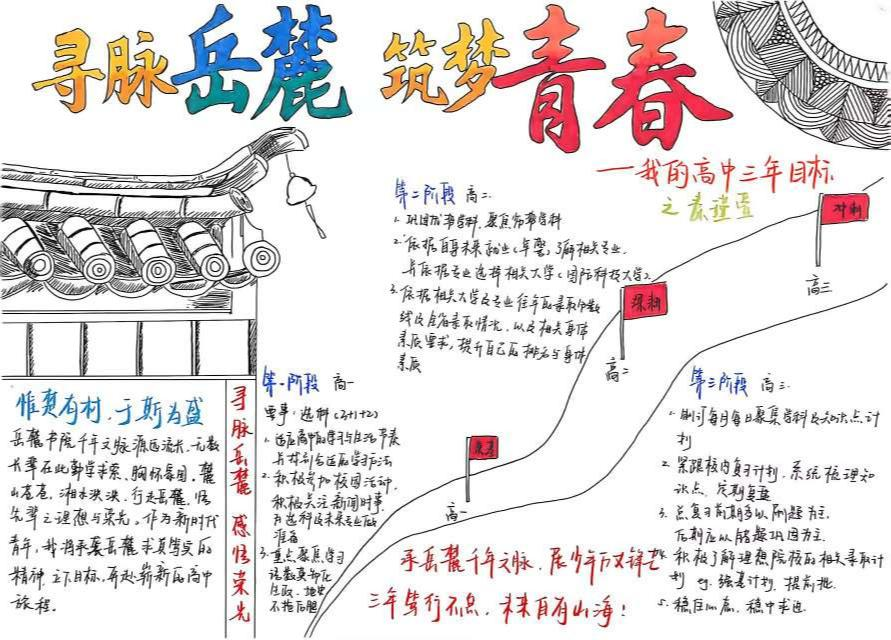 寻脉岳麓 筑梦青春
——我的高中三年目标
惟楚有材,于斯为盛
岳麓书院千年文脉源远流长,无数
大辈在此勤学求索,胸怀家国,麓
山苍苍,湘水泱泱,行走岳麓,悟
先辈之理想与荣光。作为新时代
青年,我将承袭岳麓求真笃实的
精神,立下目标,奔赴崭新的高中
旅程。
寻脉岳麓 感悟荣光
第一阶段 高一
要事:选科(3+1+2)
1. 适应高中的学习与生活节奏
并找到合适的学习方法
2. 积极参加校园活动,
积极关注新闻时事,
为选科及未来专业做
准备
3. 重点聚焦学习
第二阶段 高二
1. 巩固优势学科,聚焦弱势学科
2. 依据自身未来就业(军警)了解相关专业,
并依据专业选择相关大学(国防科技大学)
3. 依据相关大学及专业往年的录取分数
线及全省录取情况,以及相关身体
素质要求,提升自己的排名与身体
素质
高一
高二
探索
高三
冲刺
第三阶段 高三
1. 制订每月每日聚焦学科及知识点计
划
2. 紧跟校内复习计划,系统梳理知
识点,定期复盘
3. 总复习前期多以刷题为主,
后期应以错题巩固为主
4. 积极了解理想院校的相关录取计
划 eg. 强基计划,提前批
5. 稳住心态,稳中求进
承岳麓千年文脉,展少年万丈锋芒
三年笃行不怠,未来自有山海!